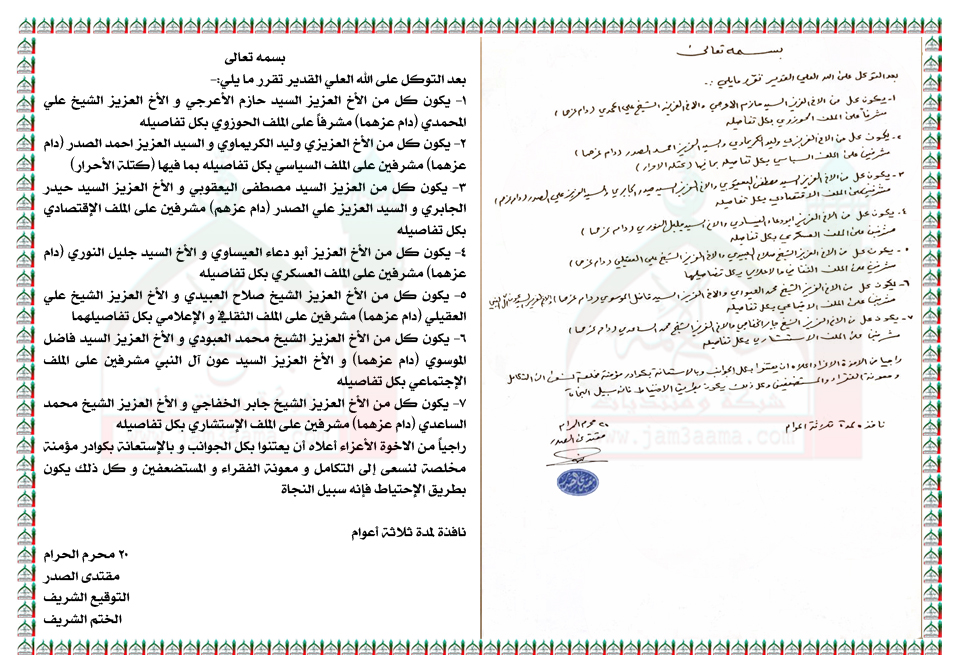 بسمه تعالى
بعد التوكل على الله العلي القدير تقرر ما يلي:-
١- يكون كل من الأخ العزيز السيد حازم الأعرجي و الأخ العزيز الشيخ علي
المحمدي (دام عزهما) مشرفاً على الملف الحوزوي بكل تفاصيله
٢- يكون كل من الأخ العزيزي وليد الكريماوي و السيد العزيز احمد الصدر (دام
عزهما) مشرفين على الملف السياسي بكل تفاصيله بما فيها (كتلة الأحرار)
٣- يكون كل من العزيز السيد مصطفى اليعقوبي و الأخ العزيز السيد حيدر
الجابري و السيد العزيز علي الصدر (دام عزهم) مشرفين على الملف الإقتصادي
بكل تفاصيله
٤- يكون كل من الأخ العزيز أبو دعاء العيساوي و الأخ السيد جليل النوري (دام
عزهما) مشرفين على الملف العسكري بكل تفاصيله
٥- يكون كل من الأخ العزيز الشيخ صلاح العبيدي و الأخ العزيز الشيخ علي
العقيلي (دام عزهما) مشرفين على الملف الثقافي و الإعلامي بكل تفاصيلهما
٦- يكون كل من الأخ العزيز الشيخ محمد العبودي و الأخ العزيز السيد فاضل
الموسوي (دام عزهما) و الأخ العزيز السيد عون آل النبي مشرفين على الملف
الإجتماعي بكل تفاصيله
٧- يكون كل من الأخ العزيز الشيخ جابر الخفاجي و الأخ العزيز الشيخ محمد
الساعدي (دام عزهما) مشرفين على الملف الإستشاري بكل تفاصيله
راجياً من الاخوة الأعزاء أعلاه أن يعتنوا بكل الجوانب و بالإستعانة بكوادر مؤمنة
مخلصة لنسعى إلى التكامل و معونة الفقراء و المستضعفين و كل ذلك يكون
بطريق الإحتياط فإنه سبيل النجاة
نافذة لمدة ثلاثة أعوام
٢٠ محرم الحرام
مقتدى الصدر
التوقيع الشريف
الختم الشريف
بسمه تعالى
بعد التوكل على الله العلي القدير تقرر مايلي :-
١- يكون كل من الاخ العزيز السيد حازم الاعرجي والاخ العزيز الشيخ علي المحمدي (دام عزهما)
مشرفاً على الملف الحوزوي بكل تفاصيله
٢- يكون كل من الاخ العزيزي وليد الكريماوي والسيد العزيز احمد الصدر (دام عزهما)
مشرفين على الملف السياسي بكل تفاصيله بما فيها (كتلة الاحرار)
٣- يكون كل من الاخ العزيز السيد مصطفى اليعقوبي والاخ العزيز السيد حيدر الجابري والسيد العزيز علي الصدر (دام عزهم)
مشرفين على الملف الاقتصادي بكل تفاصيله
٤- يكون كل من الاخ العزيز ابو دعاء العيساوي والاخ السيد جليل النوري (دام عزهما)
مشرفين على الملف العسكري بكل تفاصيله
٥- يكون كل من الاخ العزيز الشيخ صلاح العبيدي والاخ العزيز الشيخ علي العقيلي (دام عزهما)
مشرفين على الملف الثقافي والاعلامي بكل تفاصيلهما
٦- يكون كل من الاخ العزيز الشيخ محمد العبودي والاخ العزيز السيد فاضل الموسوي (دام عزهما)
مشرفين على الملف الاجتماعي بكل تفاصيله
٧- يكون كل من الاخ العزيز الشيخ جابر الخفاجي والاخ العزيز الشيخ محمد الساعدي (دام عزهما)
مشرفين على الملف الاستشاري بكل تفاصيله
راجياً من الاخوة الاعزاء اعلاه ان يعتنوا بكل الجوانب وبالاستعانة بكوادر مؤمنة مخلصة لنسعى الى التكامل
ومعونة الفقراء والمستضعفين وكل ذلك يكون بطريق الاحتياط فانه سبيل النجاة
نافذة لمدة ثلاثة اعوام
٢٠ محرم الحرام
مقتدى الصدر
شبكة ومنتديات
www.jam3aama.com